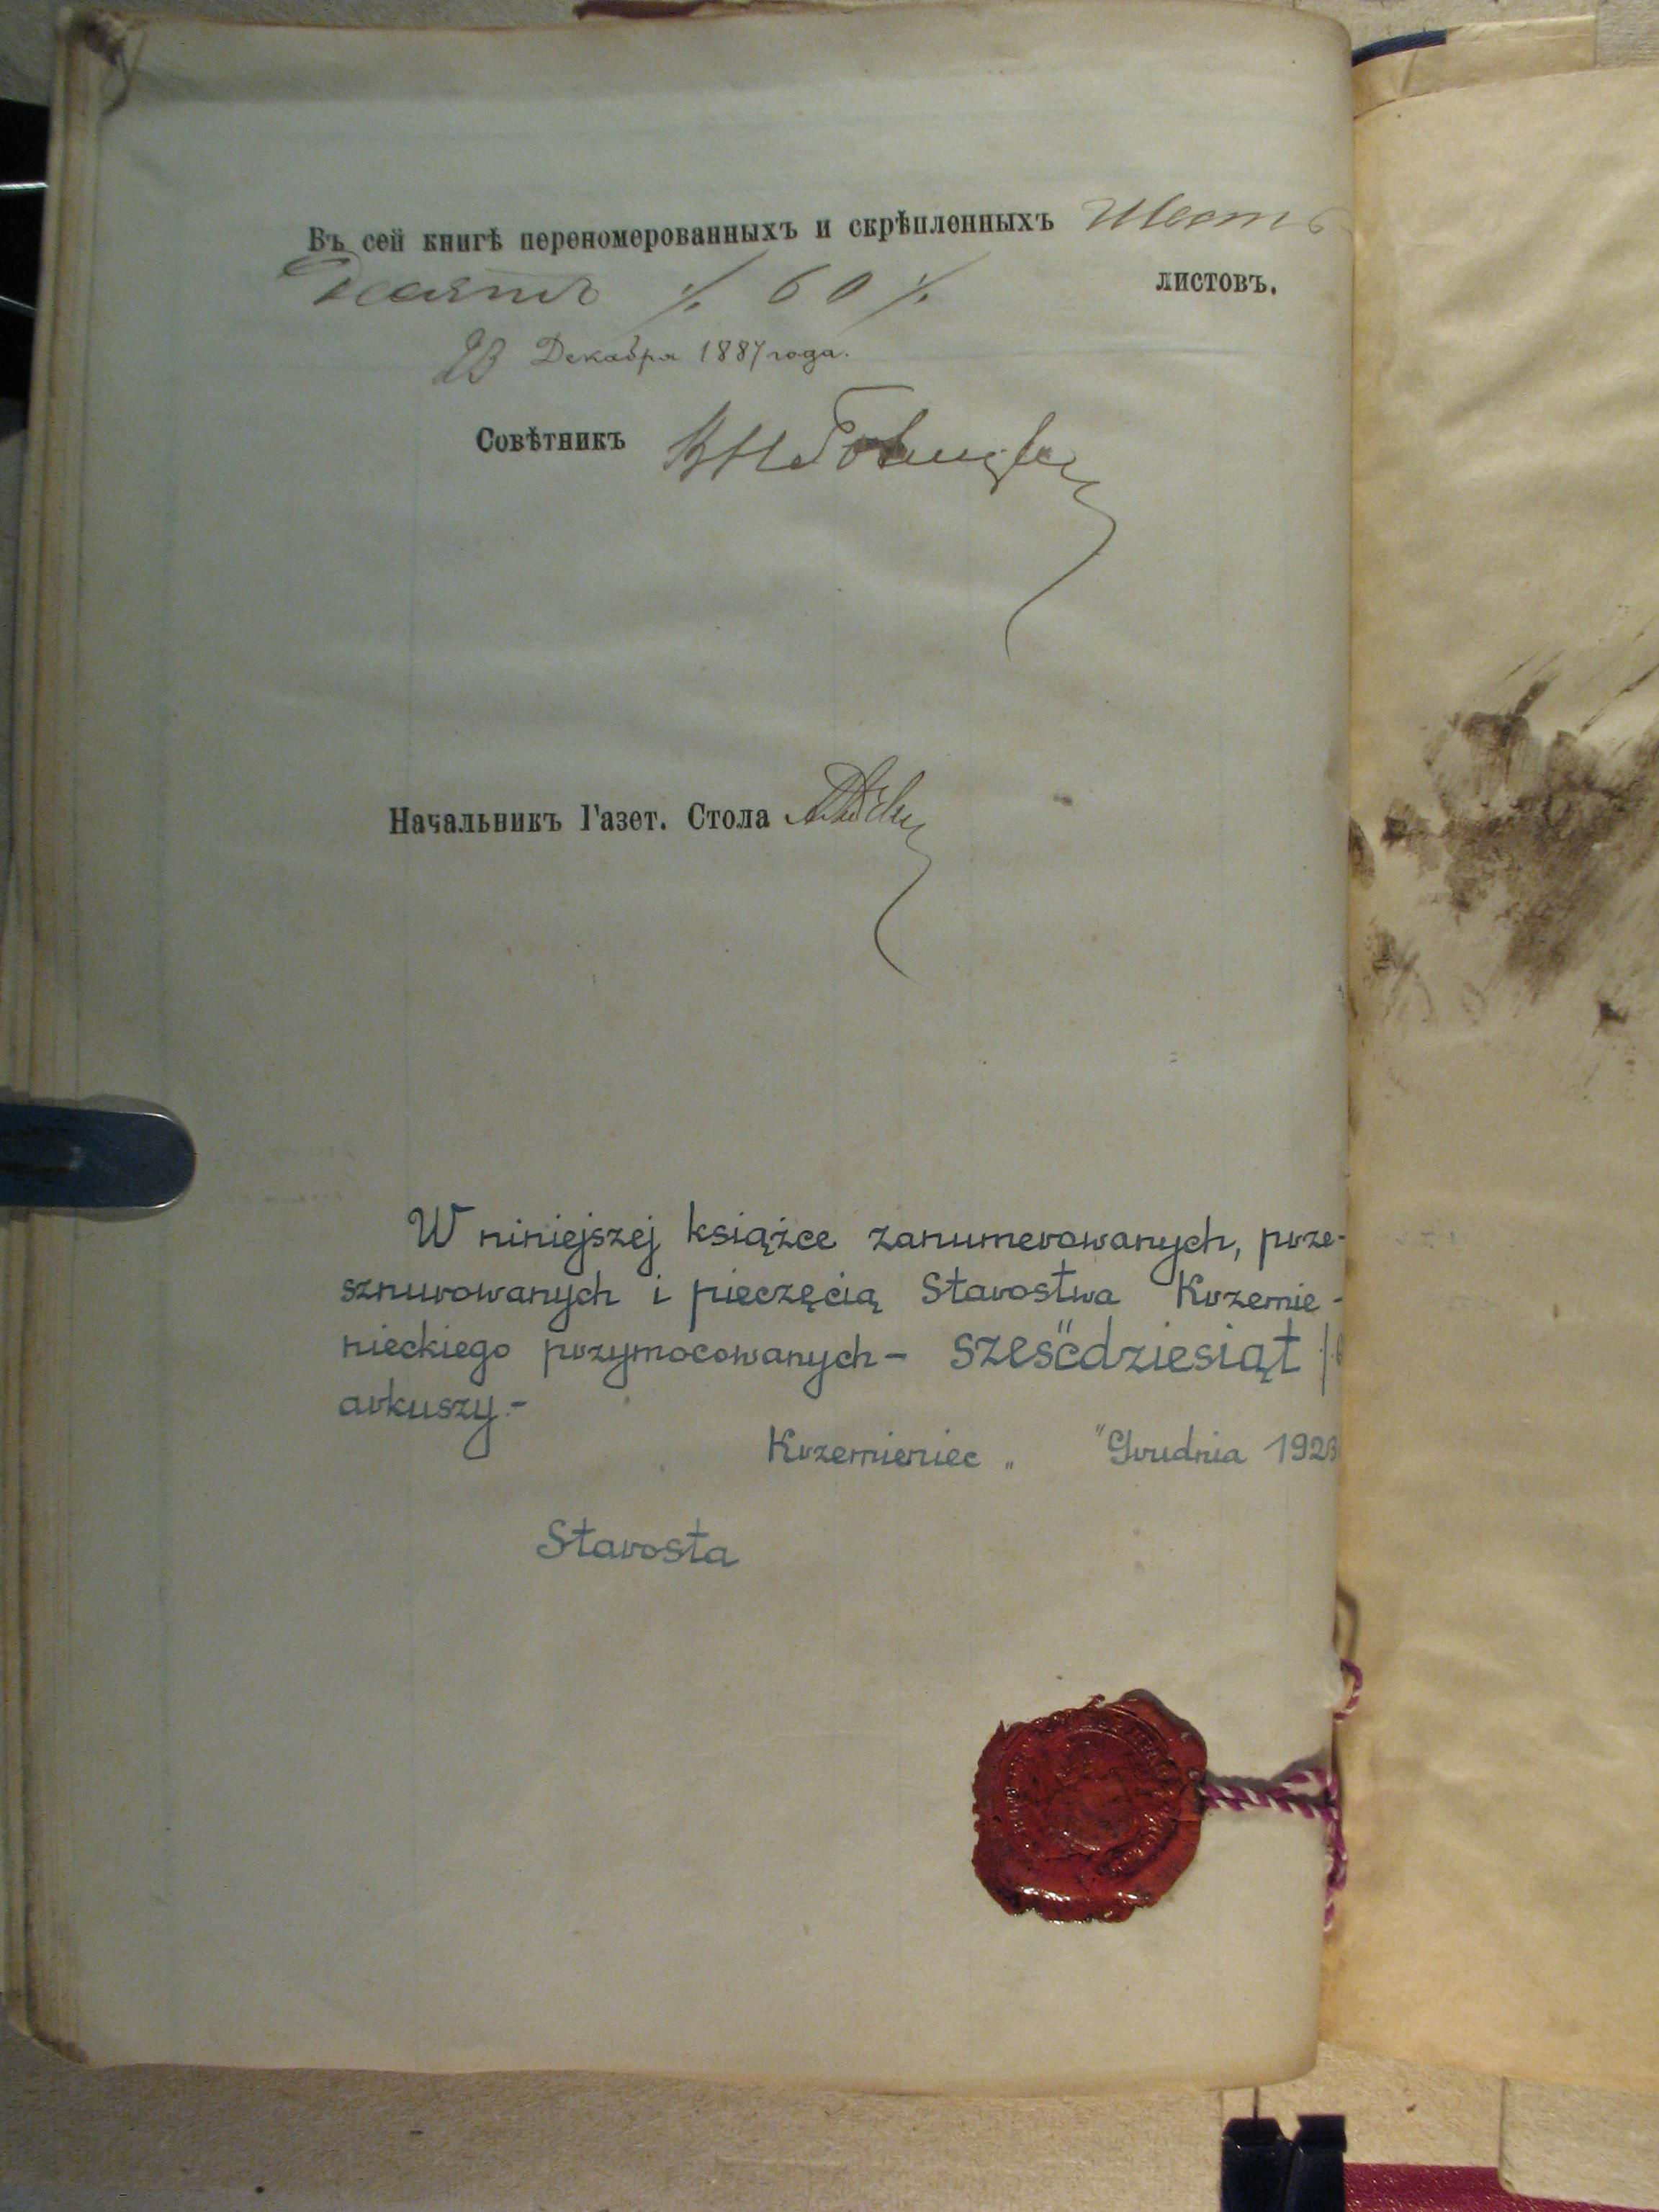 Въ сей книгѣ переномерованныхъ и скрѣпленныхъ Шесть
десятъ ./. 60 ./. листовъ.
23 Декабря 1887 года.
Совѣтникъ
Начальникъ Газет. Стола
W niniejszej książce zanumerowanych, prze-
sznurowanych i pieczęcią Starostwa Krzemie-
nieckiego przymocowanych - sześćdziesiąt
arkuszy.-
Krzemieniec „ " Grudnia 1923
Starosta